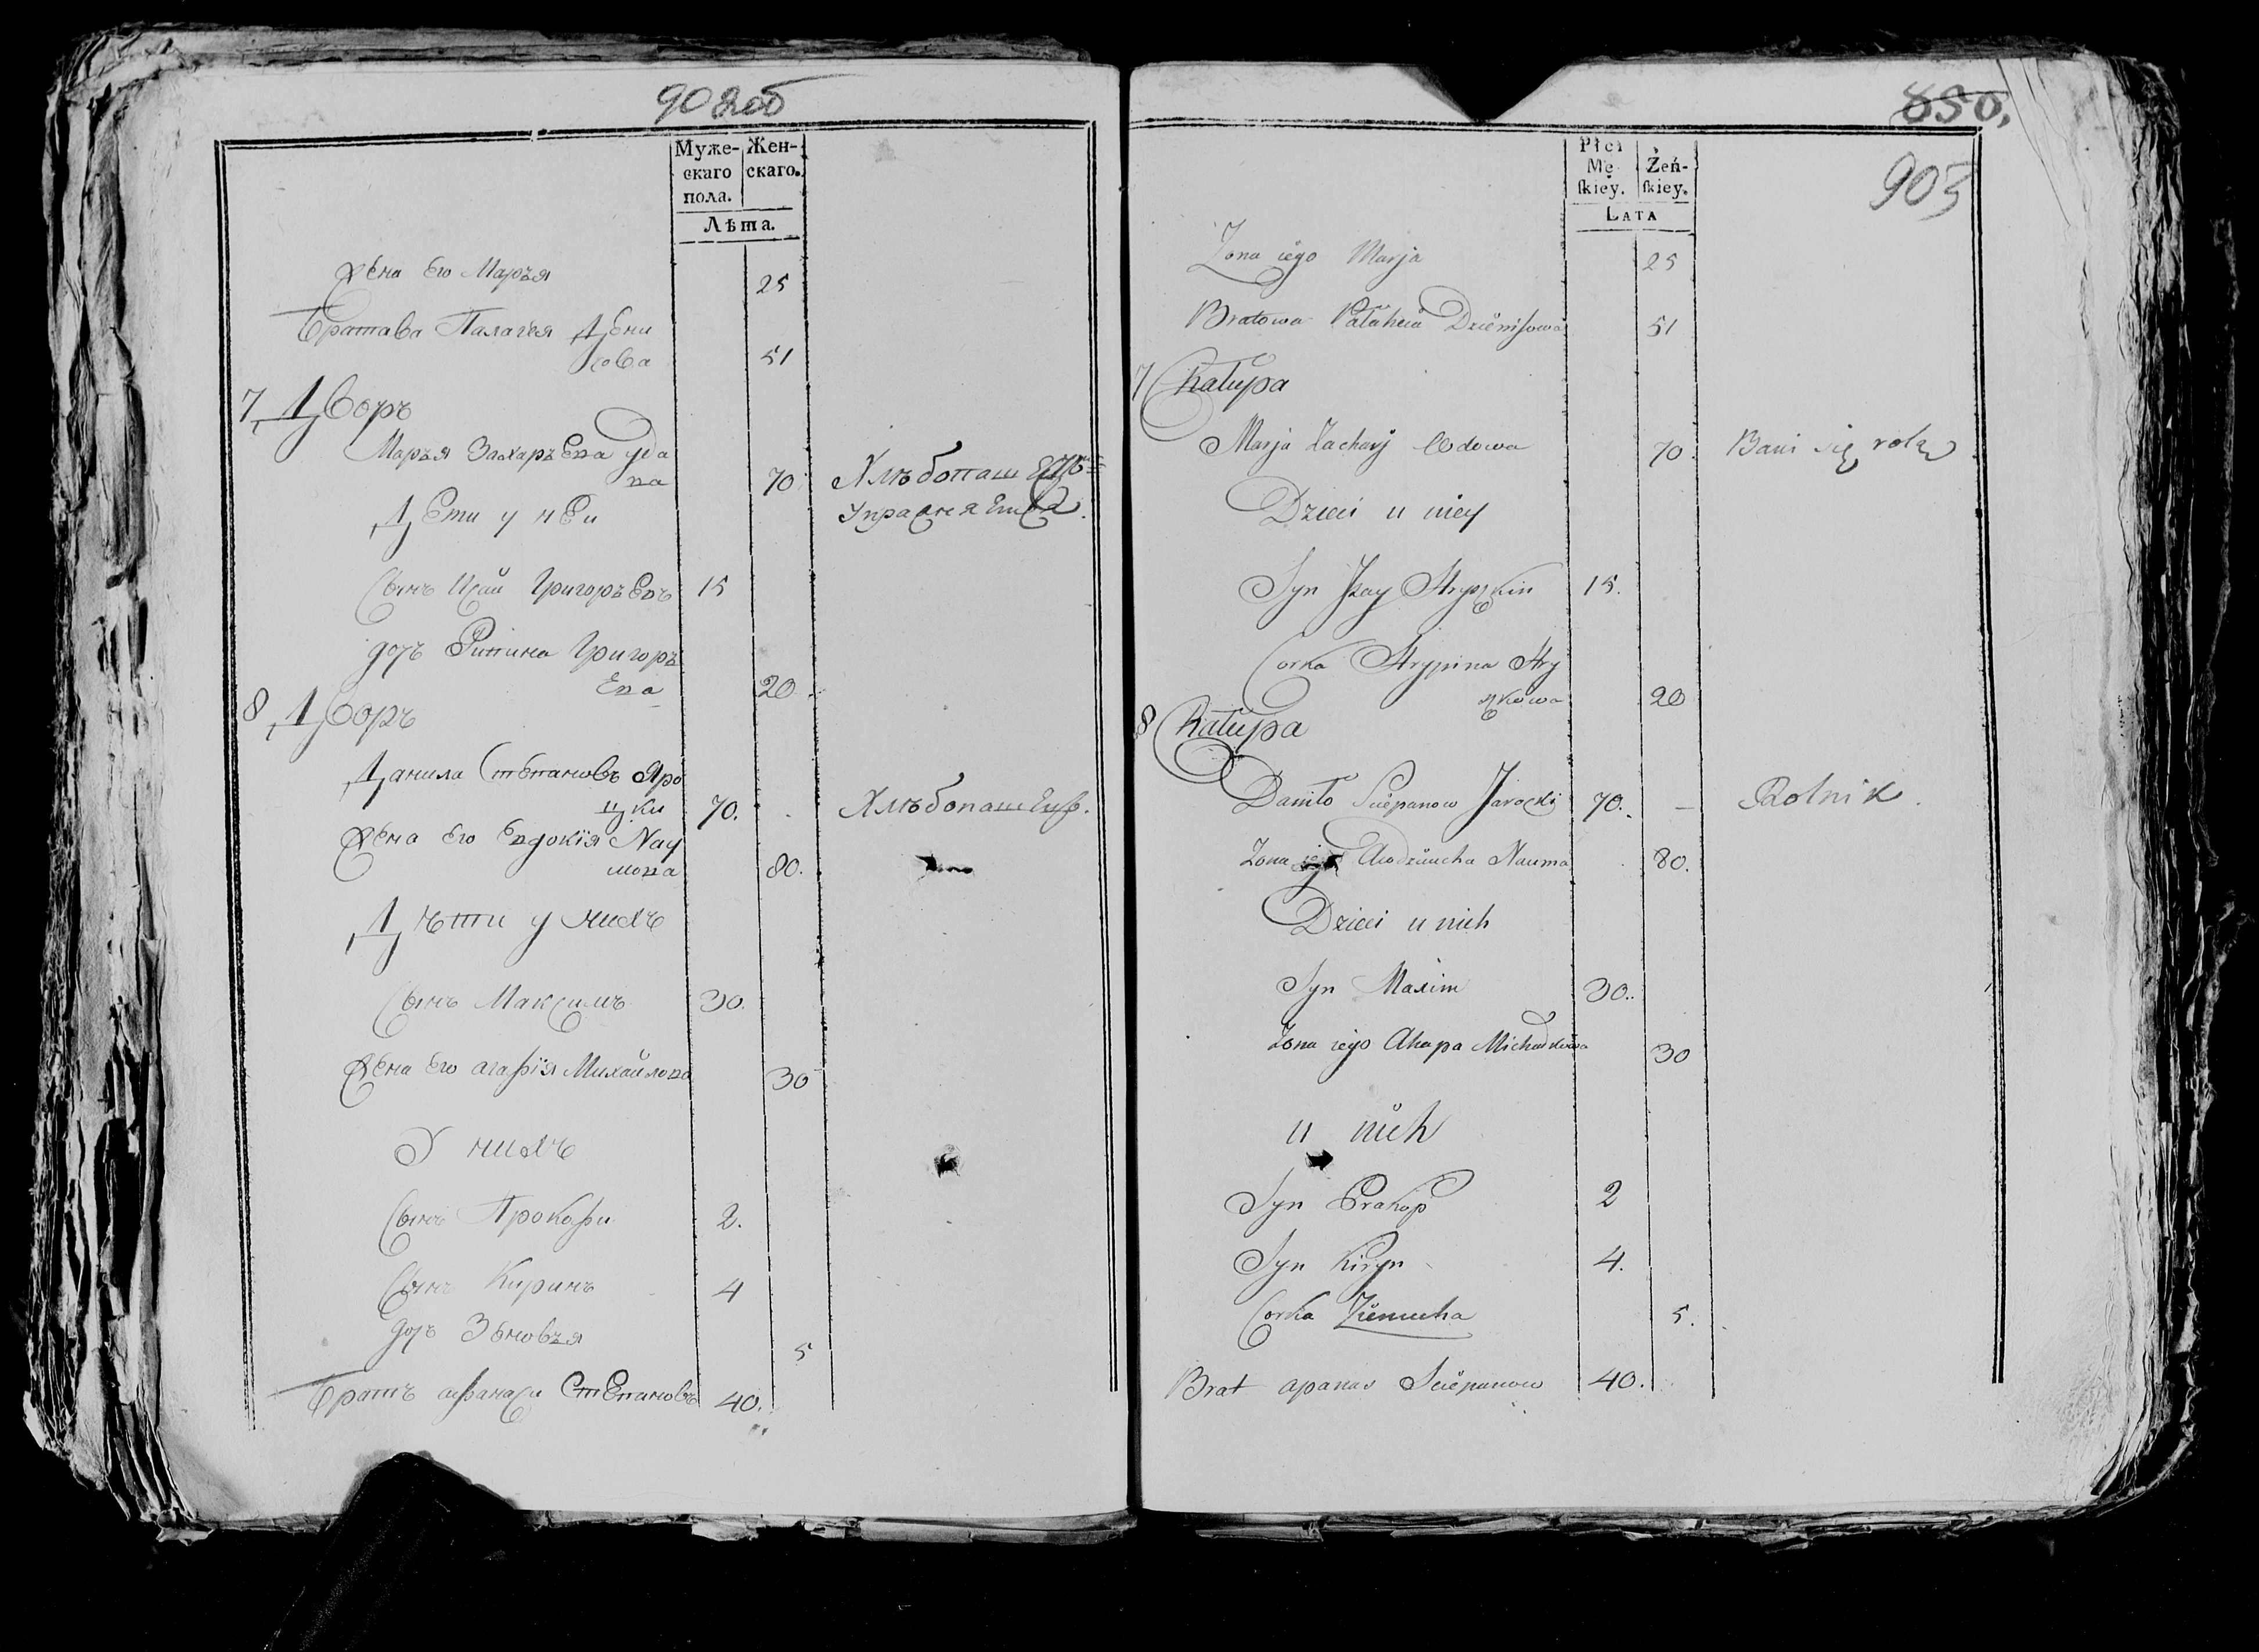 902об
Муже-
скаго
пола.
Жен-
скаго.
Лѣта.
Жена Его Марья 25
Братава Палагея Дени
сова 51
7 Дворъ
Марья Захарьева удо
ва 70 Хлѣбопаш
Упражняется
Дети у неи
Сынъ Исай Григорьевъ 15
дочь Григорь
ева 20
8 Дворъ
Данила Степановъ Яро
цки 70. Хлѣбопашец.
Жена Его Евдокія Nау
мова 80.
Дѣти у нихъ
Сынъ Максимъ 30.
Жена Его агафія Михайлова 30
У нихъ
Сынъ Прокофи 2.
Сынъ Киринъ 4
дочь Зеновья 5
Братъ афанаси Степановъ 40.
850.
903
Płci
Mę
skiey.
Żeń-
skiey.
Lata
Zona iego Marja 25
Bratowa Pałaheia Dzienisowa 51
7 Chałupa
Marja Zachary Wdowa 70. Bawi się rolą
Dzieci u niey
Syn Jzay Hryszkin 15.
Corka Hrypina Hry
szkowa 20
8 Chałupa
Daniło Sciepanow Jarocki 70. — Rolnik.
Zona iego Awdziucha Nauma 80.
Dzieci u nich
Syn Maxim 30.
Zona iego Ahapa Michałkowa 30
u nich
Syn Prakop 2
Syn Kiryn 4.
Corka Ziemucha 5.
Brat apanas Sciepanow 40.